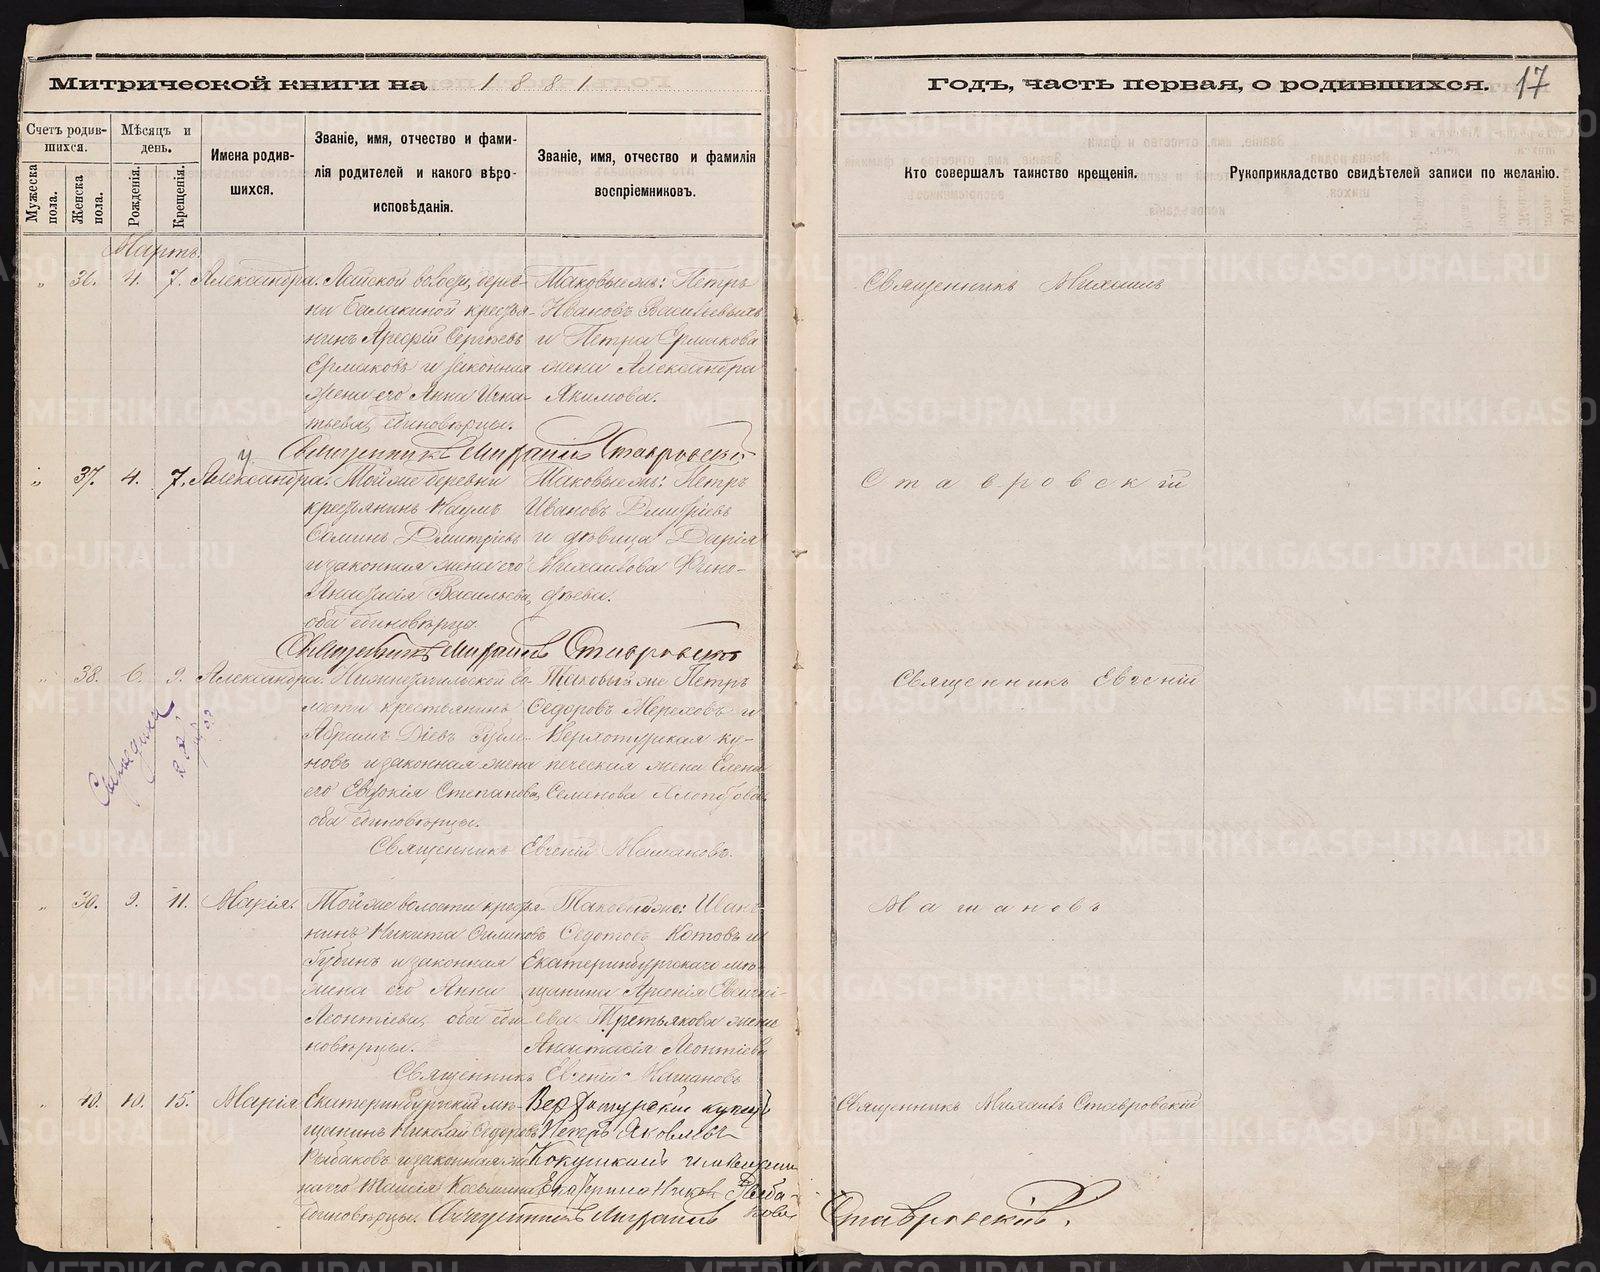 Митрической книги на 1881
Годъ, часть первая, о родившихся. 17
Счетъ родив-
шихся.
Мѣсяцъ и
день.
Мужеска
пола.
Женска
пола.
Рожденія.
Крещенія.
Имена родив-
шихся.
Званіе, имя, отчество и фами-
лія родителей и какого вѣро-
исповѣданія.
Званіе, имя, отчество и фамилія
воспріемниковъ.
Кто совершалъ таинство крещенія.
Рукоприкладство свидѣтелей записи по желанію.
Мартъ.
" 36. 4. 7. Александра.
Лайской волости, дерев-
ни Балакиной крестья-
нинъ Арефій Сергѣевъ
Ермаковъ и законная
жена его Анна Игна-
тьева, единовѣрцы.
Таковыежъ: Петръ
Ивановъ Васильевыхъ
и Петра Ермакова
жена Александра
Якимова.
Священникъ Михаилъ Ставровскій
Священникъ Михаилъ
" 37. 4. 7. Александра.
Той же деревни
крестьянинъ Наумъ
Дмитріевъ
и законная жена его
Анастасія Васильева,
оба единовѣрцы
Таковыежъ: Петръ
Ивановъ Дмитріевъ
и дѣвица Дарія
Михаилова Фино-
фѣева.
Священникъ Михаилъ Ставровскій
Ставровскій
" 38. 6. 9. Александра.
Нижнетагильской во-
лости крестьянинъ
Абрамъ Діевъ
новъ и законная жена
его Евдокія Степанова,
оба единовѣрцы.
Таковый же Петръ
Федоровъ Мереховъ и
Верхотурская ку-
печеская жена Елена
Семенова
Священникъ Евгеній Машановъ.
Священникъ Евгеній
" 39. 9. 11. Марія.
Той же волости крестья-
нинъ Никита
Губинъ и законная
жена его Анна
Леонтіева, оба еди-
новѣрцы.
Таковой же: Иванъ
Федотовъ Котовъ и
Екатеринбургскаго мѣ-
щанина Арсенія Евгені-
ева Третьякова жена
Анастасія Леонтіева
Священникъ Евгеній Машановъ
Машановъ
" 40. 10. 15. Марія
Екатеринбургскій мѣ-
щанинъ Николай Федоровъ
Рыбаковъ и законная же-
на его Таисія Козьмина
единовѣрцы.
Верхотурскій купецъ
Петръ Яковлевъ
Екатерина Рыба-
кова
Священникъ Михаилъ
Ставровскій.
Священникъ Михаилъ Ставровскій
METRIKI.GASO-URAL.RU